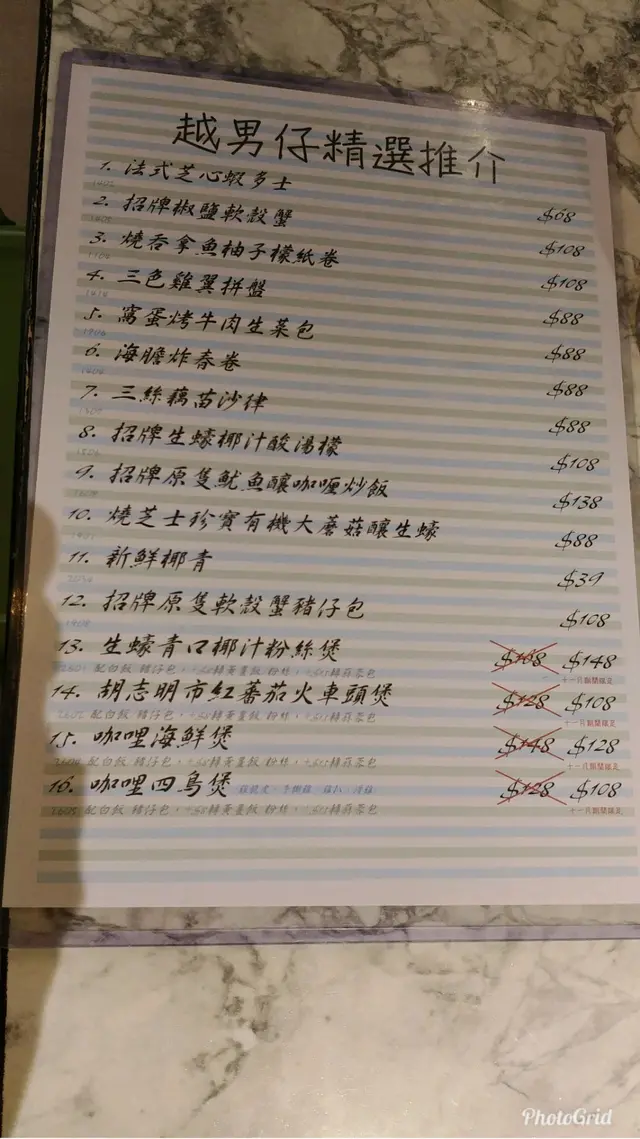 越男仔精選推介
1. 法式芝心蝦多士 $68
2. 招牌椒鹽軟殼蟹 $108
3. 燒吞拿魚柚子檬紙卷 $108
4. 三色雞翼拼盤 $88
5. 窩蛋烤牛肉生菜包 $88
6. 海膽炸春卷 $88
7. 三絲藕苗沙律 $88
8. 招牌生蠔椰汁酸湯檬 $108
9. 招牌原隻魷魚釀咖喱炒飯 $138
10. 燒芝士珍寶有機大蘑菇釀生蠔 $88
11. 新鮮椰青 $39
12. 招牌原隻軟殼蟹豬仔包 $108
13. 生蠔青口椰汁粉絲煲 $168 $148
配白飯 豬仔包,
十一月期間限定
14. 胡志明市紅蕃茄火車頭煲 $128 $108
配白飯 豬仔包,
十一月期間限定
15. 咖哩海鮮煲 $148 $128
配白飯 豬仔包,
十一月期間限定
16. 咖哩四鳥煲 $128 $108
配白飯 豬仔包,
十一月期間限定
PhotoGrid